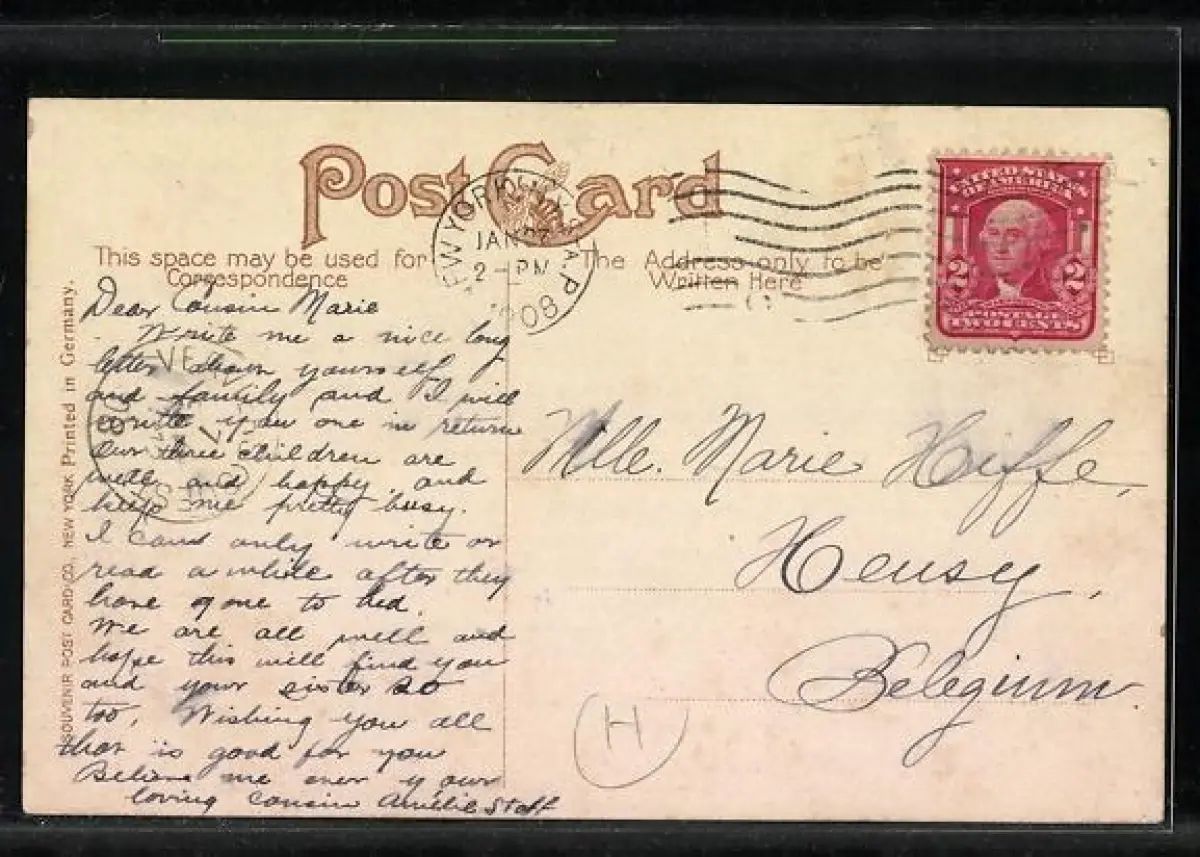 Post Card
This space may be used for
Correspondence
The Address only to be
Written Here
NEW YORK, N.Y. A.P
JAN
2 - PM
1908
UNITED STATES
OF AMERICA
2 2
POSTAGE
TWO CENTS
SOUVENIR POST CARD CO., NEW YORK Printed in Germany.
Dear Cousin Marie
Write me a nice long
letter about yourself
and family and I will
write you one in return
Our three children are
well and happy and
keep me pretty busy.
I can only write or
read a while after they
have gone to bed.
We are all well and
hope this will find you
and your sister so
too. Wishing you all
that is good for you
Believe me ever your
loving cousin Amélie Staff
Mlle. Marie Heffe,
Heusy,
Belegium.
H